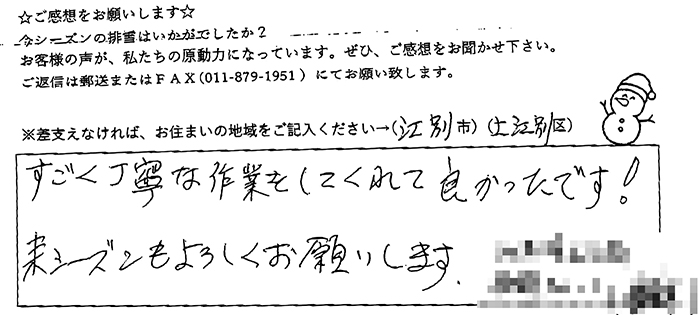 ☆ご感想をお願いします☆
今シーズンの排雪はいかがでしたか?
お客様の声が、私たちの原動力になっています。ぜひ、ご感想をお聞かせ下さい。
ご返信は郵送またはFAX(011-879-1951)にてお願い致します。
※差支えなければ、お住まいの地域をご記入ください→(江別市)(上江別区)
すごく丁寧な作業をしてくれて良かったです!
来シーズンもよろしくお願いします.